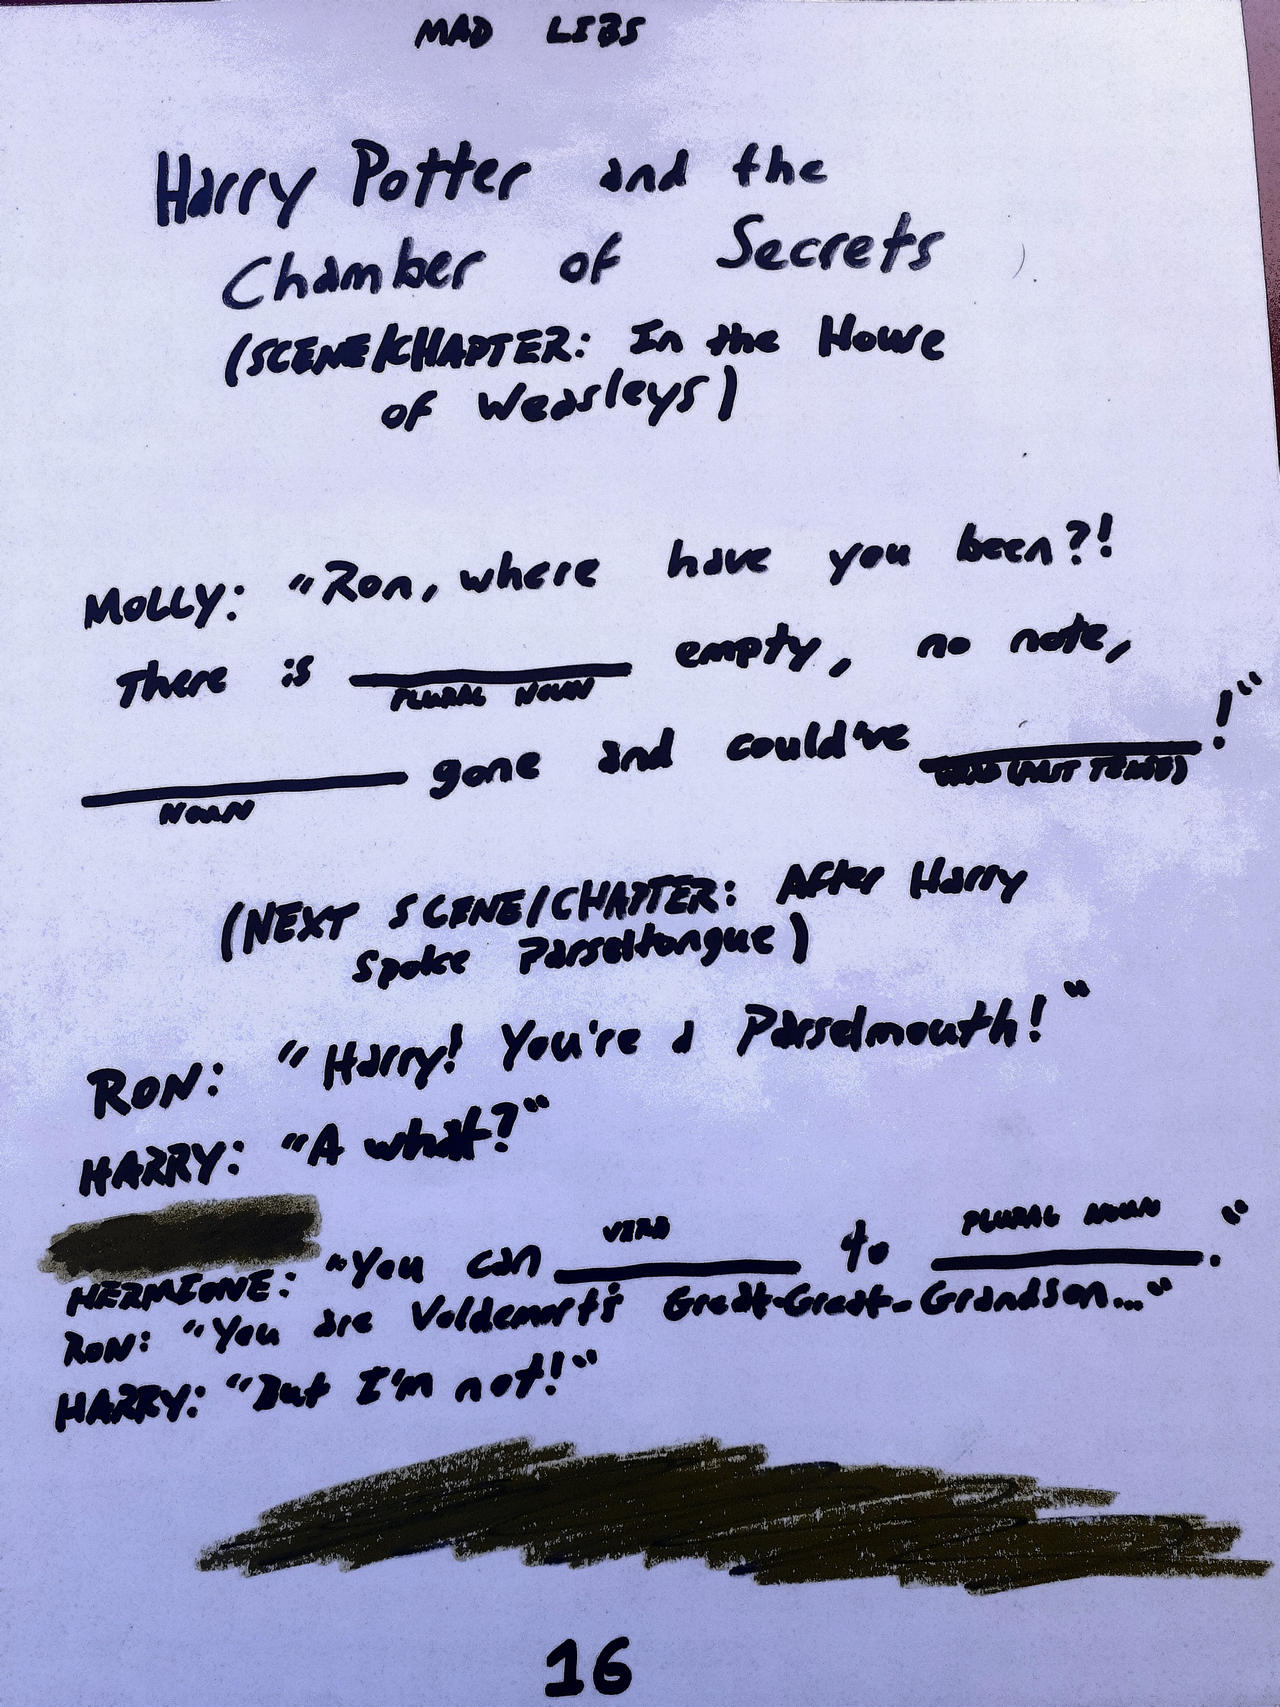 MAD LIBS
Harry Potter and the
Chamber of Secrets
(SCENE/CHAPTER: In the House
of Weasleys)
MOLLY: "Ron, where have you been?!
There is ________ empty, no note,
PLURAL NOUN
________ gone and could've ________!"
NOUN VERB (PAST TENSE)
(NEXT SCENE/CHAPTER: After Harry
Spoke Parseltongue)
RON: "Harry! You're a Parselmouth!"
HARRY: "A what?"
VERB PLURAL NOUN
HERMIONE: "You can ________ to ________."
RON: "You are Voldemort's Great-Great-Grandson..."
HARRY: "But I'm not!"
16